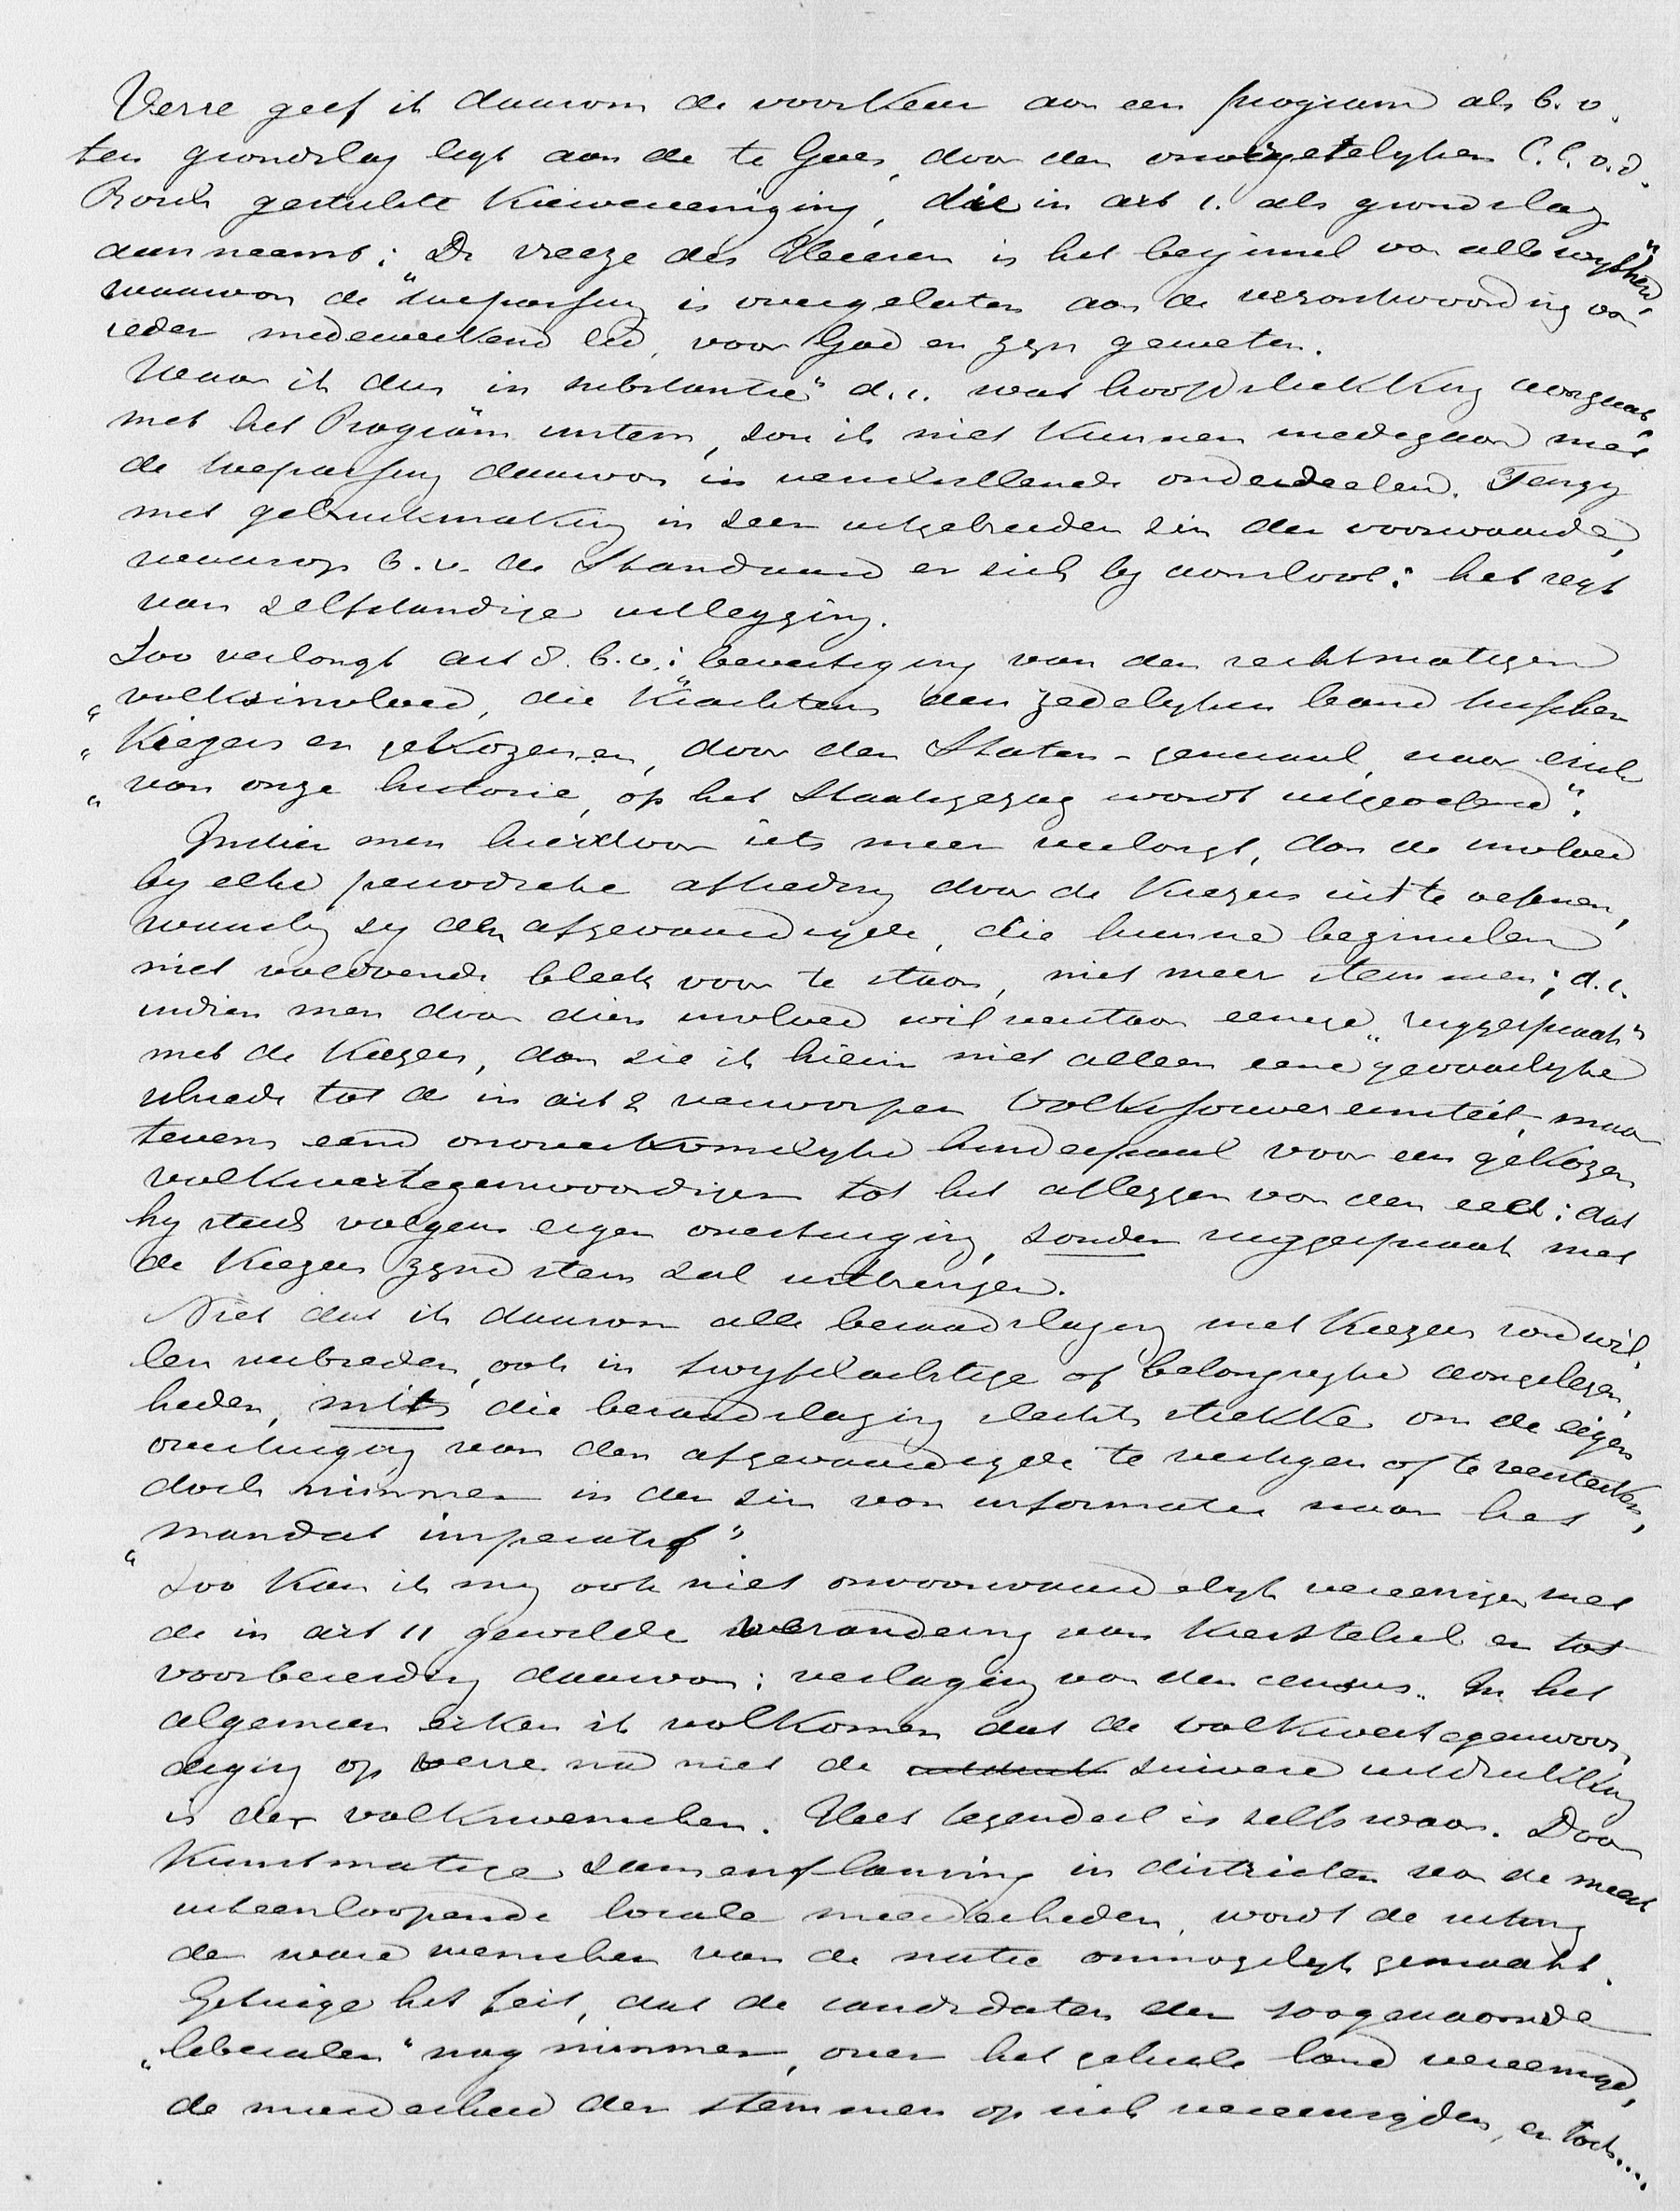 Verre geef ik daarom de voorkeur aan een program als b.v.
ten grondslag ligt aan de te Goes, door den onvergetelyken C.C.v.d.
Bosch gestichte Kiesvereeniging, die in art 1. als grondslag
aanneemt: "De vreeze des Heeren is het beginsel van alle wysheid"
waarvan de toepassing is overgelaten aan de verantwoording van
ieder medewerkend lid, voor God en zyn geweten.
Waar ik dus in substantie" d.i. wat hoofdstrekking aangaat
met het Program instem, zou ik niet kunnen medegaan met
de toepassing daarvan in verschillende onderdeelen. Tenzy
met gebruikmaking in zeer uitgebreiden zin der voorwaarde,
waarop b.v. de Standaard er zich by aansloot: het regt
van zelfstandige uitlegging.
Zoo verlangt art 8. b.v.: bevestiging van den rechtmatigen
"volksinvloed, die krachtens den zedelyken band tusschen
"Kiezers en gekozenen, door den Staten-generaal, naar eisch
"van onze historie, op het Staatsgezag wordt uitgeoefend".
Indien men hierdoor iets meer verlangt, dan de invloed
by elke periodieke aftreding door de Kiezers uit te oefenen,
waarby zy den afgevaardigde, die hunne beginselen
niet voldoende bleek voor te staan, niet meer stemmen; d.i.
indien men door dien invloed wil verstaan eenige "ruggespraak"
met de Kiezers, dan zie ik hierin niet alleen eene gevaarlyke
schrede tot de in art 2 verworpen Volkssouvereiniteit, maar
tevens eene onoverkomelyke hinderpaal voor een gekozen
volksvertegenwoordiger tot het afleggen van den eed: dat
hy steeds volgens eigen overtuiging, zonder ruggespraak met
de Kiezers zyne stem zal uitbrengen.
Niet dat ik daarom alle beraadslaging met Kiezers zou wil-
len verbieden, ook in twyfelachtige of belangryke aangelegen-
heden, mits die beraadslaging slechts strekke om de eigen
overtuiging van den afgevaardigde te vestigen of te versterken,
doch nimmer in den zin van informatie naar het
"mandat imperatif".
Zoo kan ik my ook niet onvoorwaardelyk vereenigen met
de in art 11 gewilde verandering van Kiesstelsel en tot
voorbereiding daarvan: verlaging van den census. In het
algemeen erken ik volkomen dat de volksvertegenwoor-
diging op verre na niet de zuivere uitdrukking
is der volkswenschen. Het tegendeel is zelfs waar. Door
Kunstmatige samenflansing in districten van de meest
uiteenloopende locale meerderheden, wordt de uiting
der ware wenschen van de natie onmogelyk gemaakt.
Getuige het feit, dat de candidaten der zoogenaamde
"liberalen" nog nimmer, over het geheele land vereenigd,
de meerderheid der stemmen op zich vereenigden, en toch....